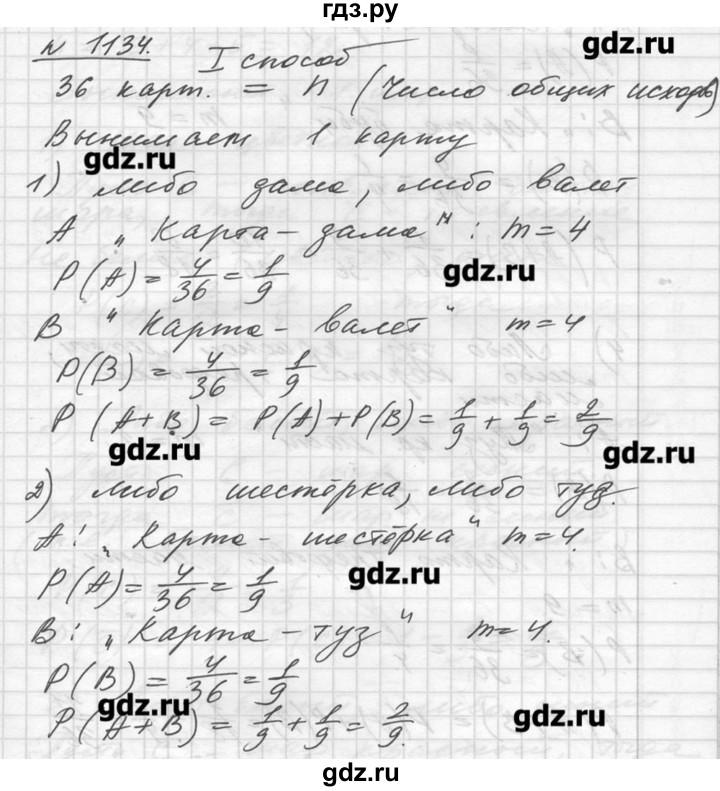 гдз.ру
№ 1134.
gdz.ru
I способ
36 карт. = n (число общих исходов)
Вынимает 1 карту
gdz.ru
1) либо дама, либо валет
А „Карта - дама" : m = 4
gdz.ru
P(A) = 4/36 = 1/9
В "Карта - валет" m = 4
P(B) = 4/36 = 1/9
P(A+B) = P(A)+P(B) = 1/9 + 1/9 = 2/9
gdz.ru
gdz.ru
2) либо шестёрка, либо туз.
А: „Карта - шестёрка" m = 4.
gdz.ru
P(A) = 4/36 = 1/9
В: „Карта - туз" m = 4.
P(B) = 4/36 = 1/9
gdz.ru
gdz.ru
P(A+B) = 1/9 + 1/9 = 2/9.
gdz.ru